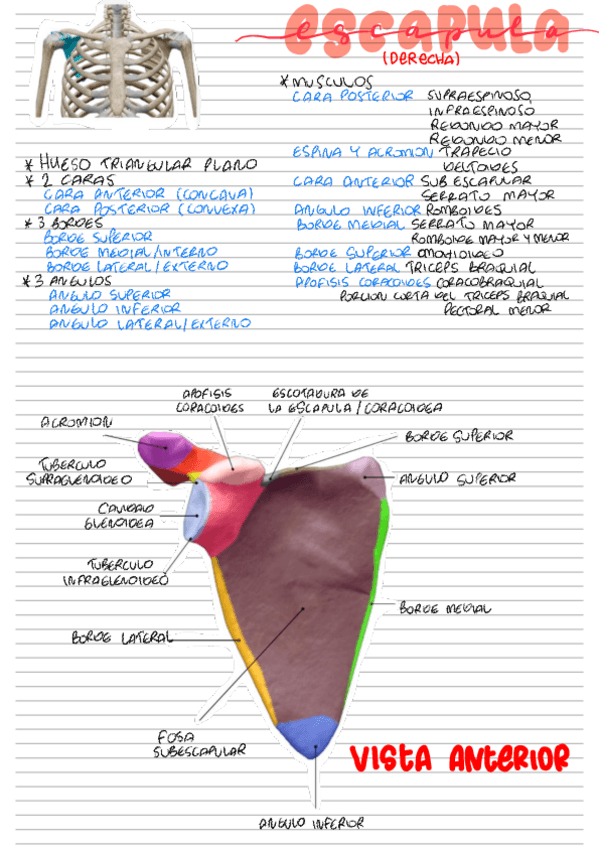 escapula
(DERECHA)
* MUSCULOS
CARA POSTERIOR SUPRAESPINOSO
INFRAESPINOSO
REDONDO MAYOR
REDONDO MENOR
ESPINA Y ACROMION TRAPECIO
DELTOIDES
CARA ANTERIOR SUBESCAPULAR
SERRATO MAYOR
ANGULO INFERIOR ROMBOIDES
BORDE MEDIAL SERRATO MAYOR
ROMBOIDE MAYOR Y MENOR
BORDE SUPERIOR OMOHIOIDEO
BORDE LATERAL TRICEPS BRAQUIAL
APOFISIS CORACOIDES CORACOBRAQUIAL
PORCION CORTA DEL TRICEPS BRAQUIAL
PECTORAL MENOR
* HUESO TRIANGULAR PLANO
* 2 CARAS
CARA ANTERIOR (CONCAVA)
CARA POSTERIOR (CONVEXA)
* 3 BORDES
BORDE SUPERIOR
BORDE MEDIAL/INTERNO
BORDE LATERAL/EXTERNO
* 3 ANGULOS
ANGULO SUPERIOR
ANGULO INFERIOR
ANGULO LATERAL/EXTERNO
APOFISIS
CORACOIDES
ESCOTADURA DE
LA ESCAPULA/CORACOIDEA
ACROMION
BORDE SUPERIOR
TUBERCULO
SUPRAGLENOIDEO
ANGULO SUPERIOR
CAVIDAD
GLENOIDEA
TUBERCULO
INFRAGLENOIDEO
BORDE MEDIAL
BORDE LATERAL
FOSA
SUBESCAPULAR
VISTA ANTERIOR
ANGULO INFERIOR